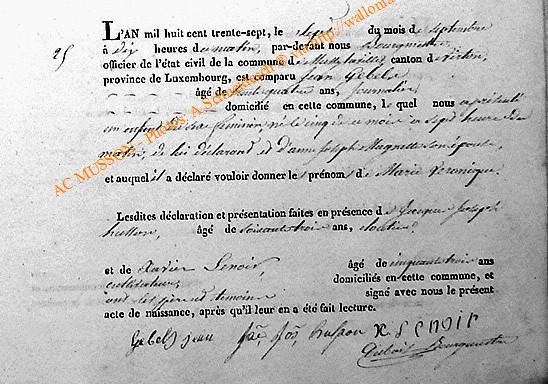 25
L'AN mil huit cent trente-sept, le sept du mois de septembre
à dix heures du matin, par-devant nous Bourgmestre
officier de l'état civil de la commune de canton de Virton,
province de Luxembourg, est comparu jean Gebels
âgé de trente quatre ans, journalier,
domicilié en cette commune, lequel nous a présenté
un enfant du sexe feminin, né le cinq de ce mois à sept heures du
matin, de lui déclarant et d'anne joseph Magnette son épouse,
et auquel il a déclaré vouloir donner les prénoms de Marie Veronique.
Lesdites déclaration et présentation faites en présence de Jacques Joseph
husson, âgé de soixante trois ans, cloutier
et de Xavier Lenoir, âgé de cinquante trois ans
cultivateur, domiciliés en cette commune, et
ont les témoins signé avec nous le présent
acte de naissance, après qu'il leur en a été fait lecture.
Gebels jean jac jos husson x lenoir
Bourgmestre
AC MUSSON - Photos: A.Scheuren @ via http://wallonia